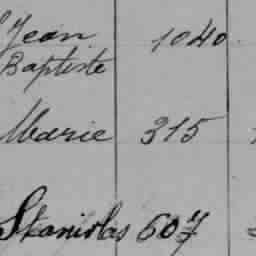 Jean 1040
Baptiste
Marie 315
Stanislas 607